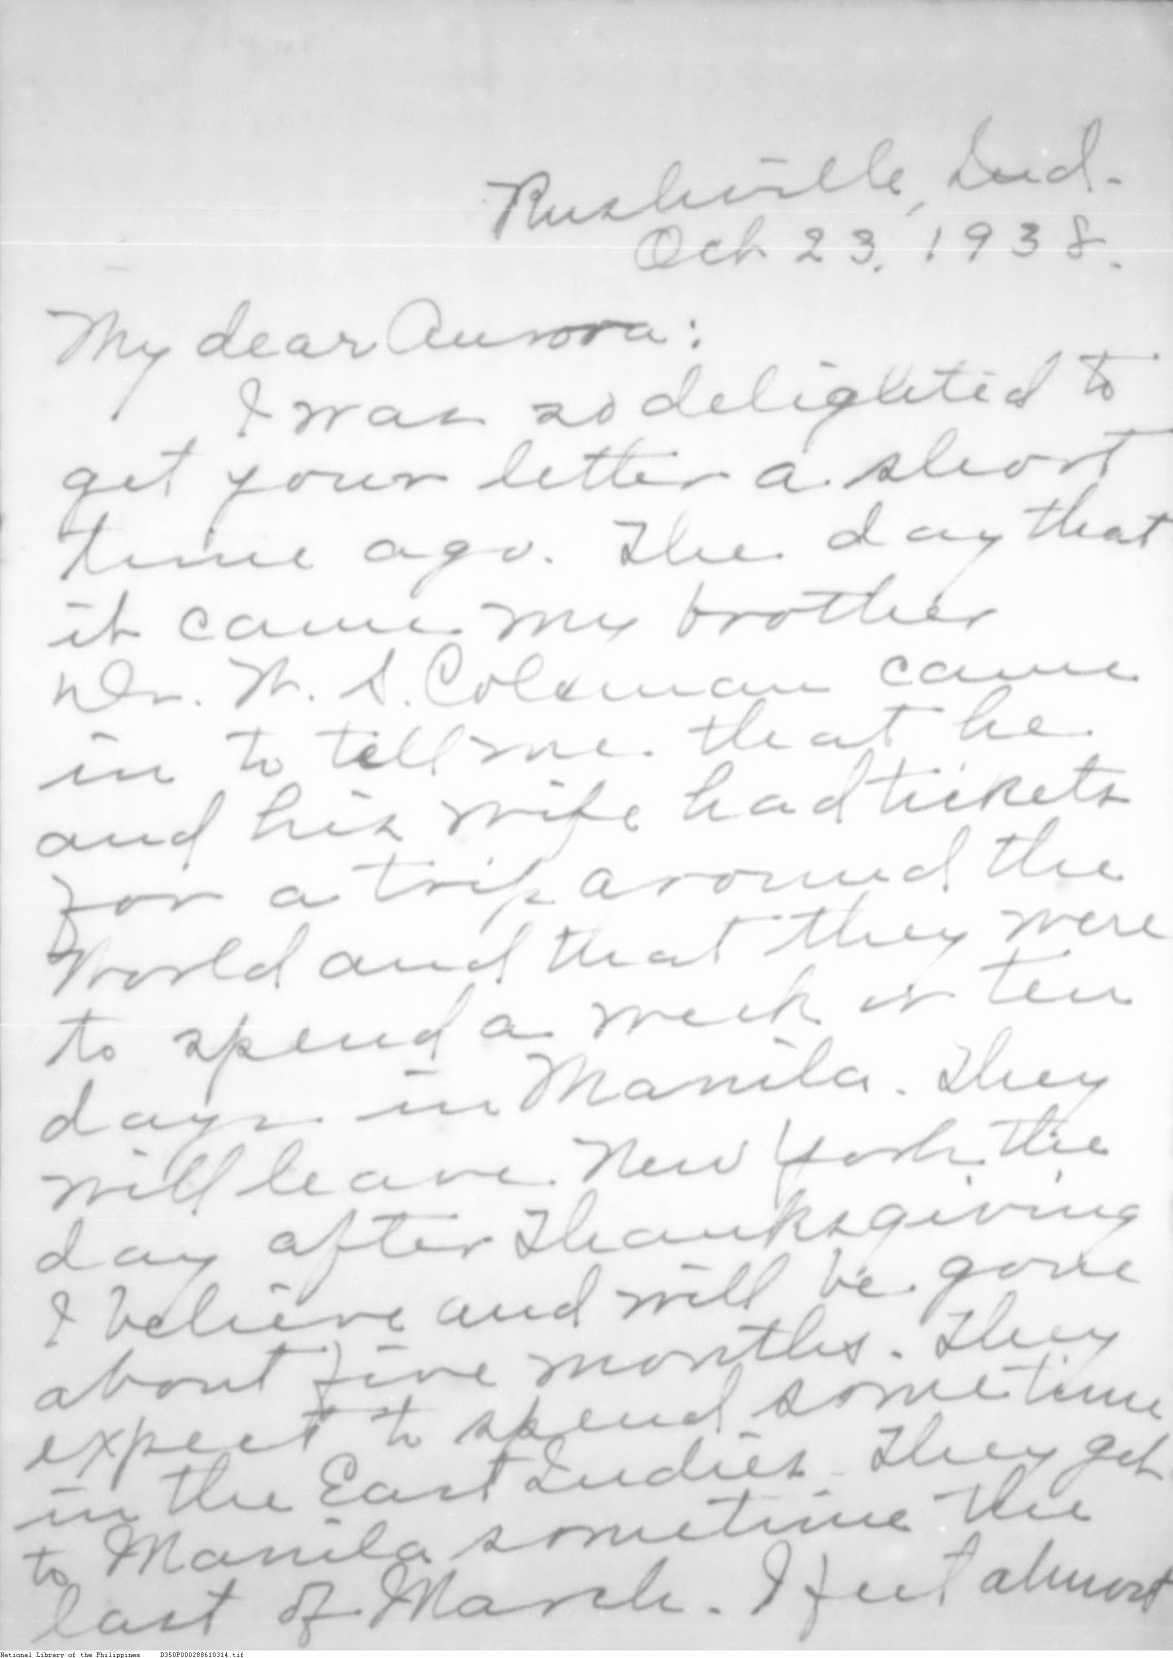 Rushville, Ind.
Oct 23, 1938.
My dear Aurora:
I was so delighted to
get your letter a short
time ago. The day that
it came my brother
Dr. W. S. Coleman came
in to tell me that he
and his wife had tickets
for a trip around the
World and that they were
to spend a week or ten
days in Manila. They
will leave New York the
day after Thanksgiving
I believe and will be gone
about five months. They
expect to spend sometime
in the East Indies. They get
to Manila sometime the
last of March. I feel almost
National Library of the Philippines D350P000288610314.tif